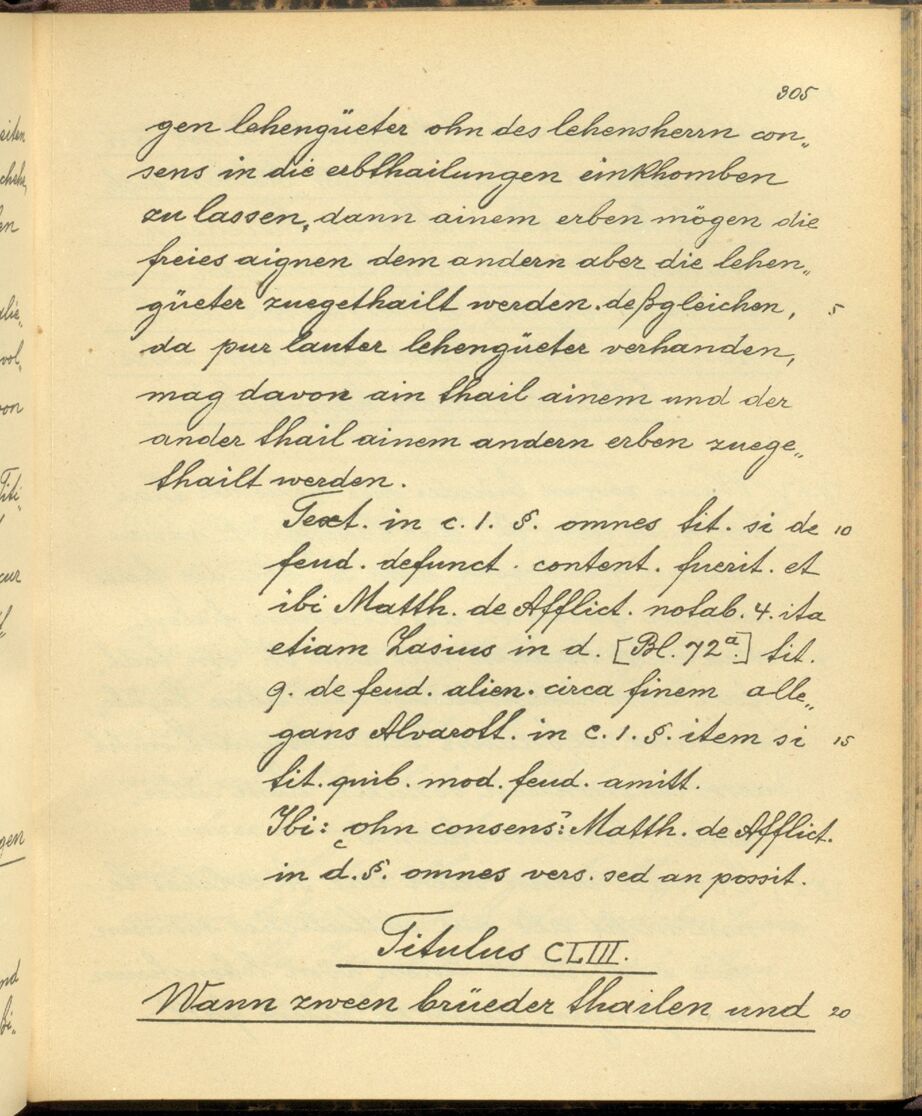 305
gen lehengüeter ohn des lehensherrn con„
sens in die erbthailungen einkhomben
zu lassen, dann ainem erben mögen die
freies aignen dem andern aber die lehen„
güeter zuegethailt werden. deßgleichen, 5
da pur lauter lehengüeter verhanden,
mag davon ain thail ainem und der
ander thail ainem andern erben zuege„
thailt werden.
Text. in c. 1. §. omnes tit. si de 10
feud. defunct. content. fuerit. et
ibi Matth. de Afflict. notab. 4. ita
etiam Zasius in d. [Bl. 72a.] tit.
9. de feud. alien. circa finem alle„
gans Alvarott. in c. 1. §. item si 15
tit. quib. mod. feud. amitt.
Ibi: ohn consens: Matth. de Afflict.
in d. §. omnes vers. sed an possit.
Titulus CLIII.
Wann zween brüeder thailen und 20